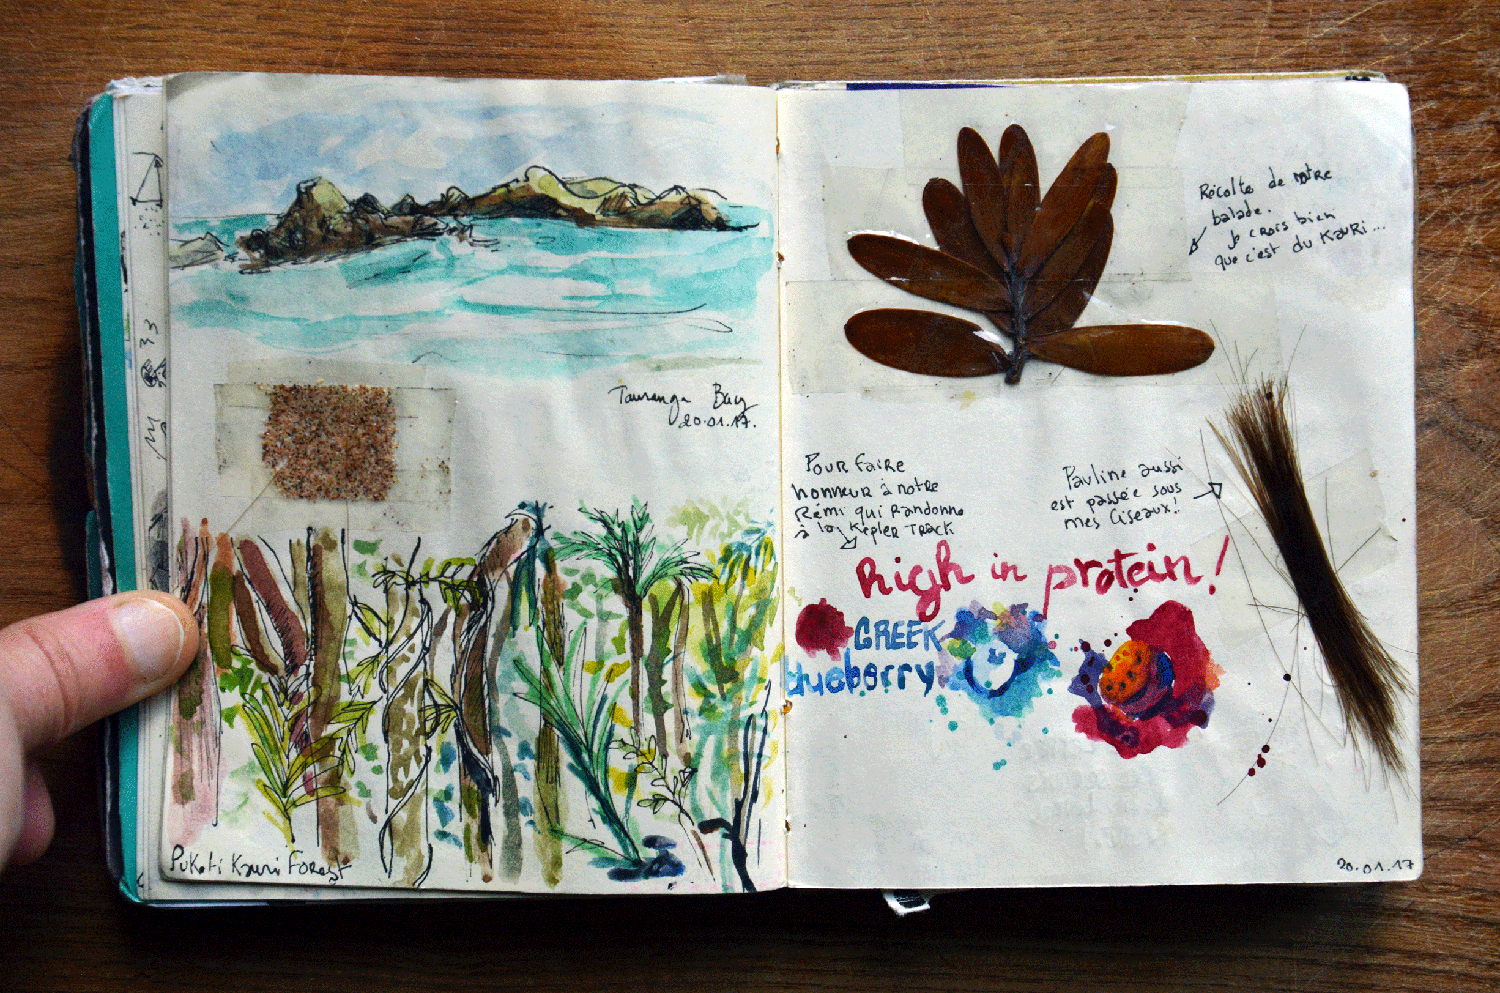 33
Tauranga Bay
20.01.17.
Puketi Kauri Forest
Récolte de notre
balade.
Je crois bien
que c'est du Kauri...
Pour faire
honneur à notre
Rémi qui Randonne
à la Kepler Track
Pauline aussi
est passée sous
mes Ciseaux!
high in protein!
GREEK
blueberry
20.01.17